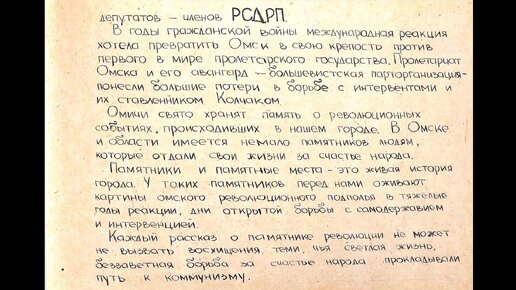 депутатов – членов РСДРП.
В годы гражданской войны международная реакция
хотела превратить Омск в свою крепость против
первого в мире пролетарского государства. Пролетариат
Омска и его авангард – большевистская парторганизация-
понесли большие потери в борьбе с интервентами и
их ставленником Колчаком.
Омичи свято хранят память о революционных
событиях, происходивших в нашем городе. В Омске
и области имеется немало памятников людям,
которые отдали свои жизни за счастье народа.
Памятники и памятные места – это живая история
города. У таких памятников перед нами оживают
картины омского революционного подполья в тяжелые
годы реакции, дни открытой борьбы с самодержавием
и интервенцией.
Каждый рассказ о памятнике революции не может
не вызвать восхищения теми, чья светлая жизнь,
беззаветная борьба за счастье народа прокладывали
путь к коммунизму.